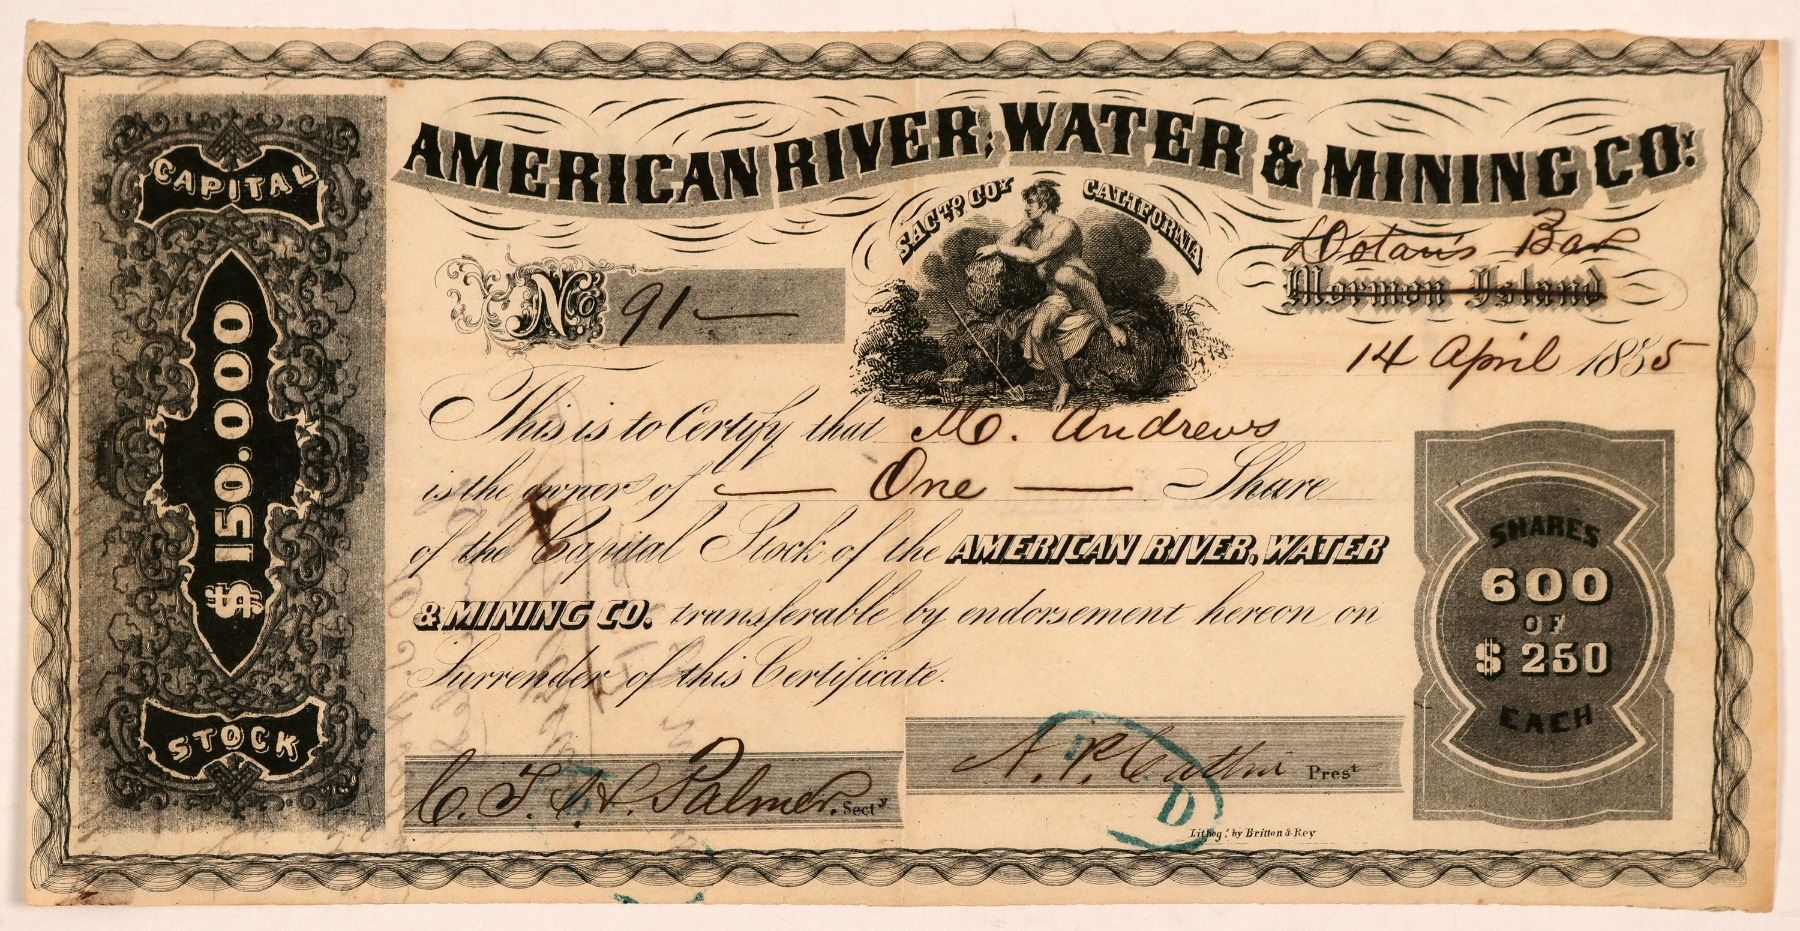 CAPITAL
$150.000
STOCK
AMERICAN RIVER, WATER & MINING COY.
SACTO COY CALIFORNIA
Dotan's Bar
Mormon Island
No 91
14 April 1855
This is to Certify that M. Andrews
is the owner of — One — Share
of the Capital Stock of the AMERICAN RIVER, WATER
& MINING CO. transferable by endorsement hereon on
Surrender of this Certificate.
SHARES
600
OF
$250
EACH
C. T. H. Palmer. Secty
A. P. Catlin Prest
D
Lithog. by Britton & Rey